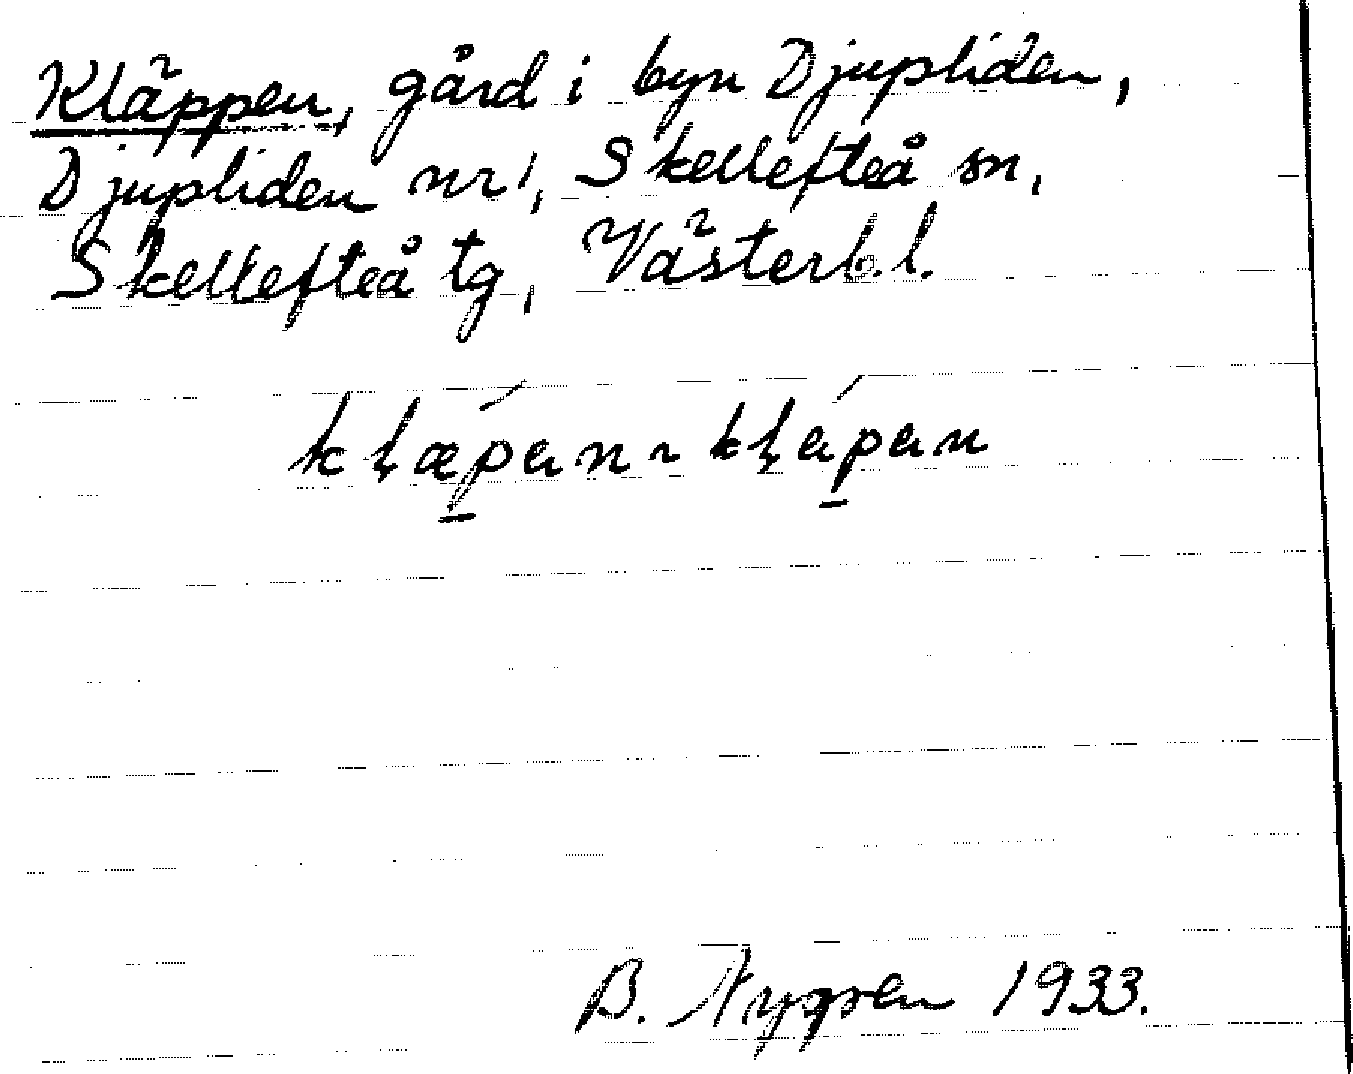 Kläppen, gård i byn Djupliden,
Djupliden nr 1, Skellefteå sn,
Skellefteå tg, Västerb. l.
kḷæ´p̲an ~ kḷa´p̲an
B. 1933.